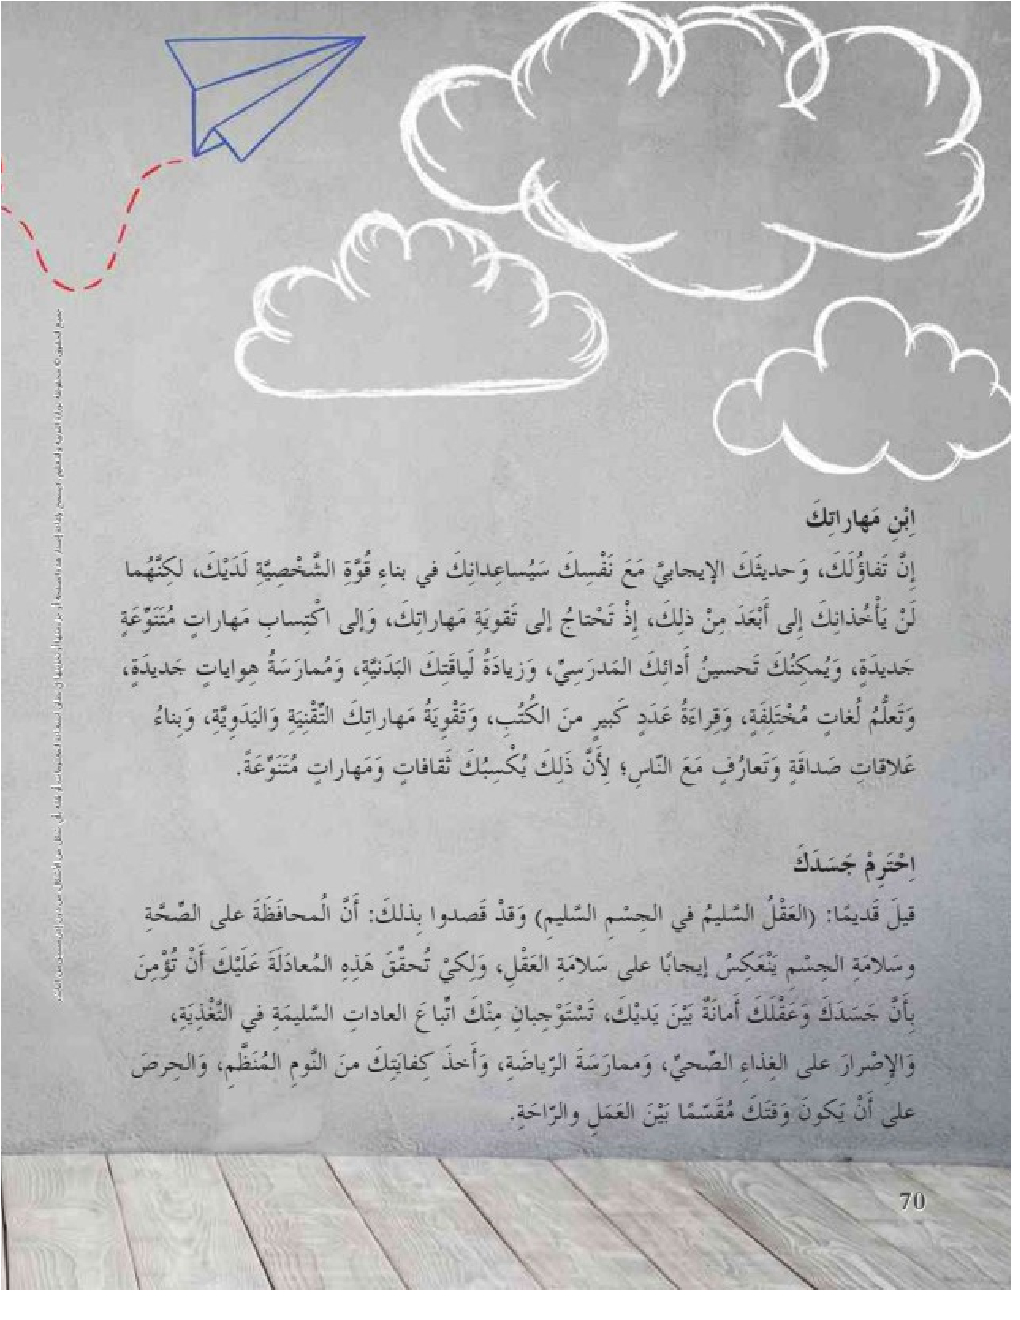 اِبْنِ مَهاراتِكَ
إِنَّ تَفاؤُلَكَ، وَحديثَكَ الإيجابيَّ مَعَ نَفْسِكَ سَيُساعِدانِكَ في بناءِ قُوَّةِ الشَّخْصِيَّةِ لَدَيْكَ، لكِنَّهُما
لَنْ يَأْخُذانِكَ إِلى أَبْعَدَ مِنْ ذلِكَ، إِذْ تَحْتاجُ إلى تَقويَةِ مَهاراتِكَ، وَإلى اكْتِسابِ مَهاراتٍ مُتَنَوِّعَةٍ
جَديدَةٍ، وَيُمكِنُكَ تَحسينُ أَدائِكَ المَدرَسِيِّ، وَزيادَةُ لَياقَتِكَ البَدَنيَّةِ، وَمُمارَسَةُ هِواياتٍ جَديدَةٍ،
وَتَعلُّمُ لُغاتٍ مُخْتَلِفَةٍ، وَقِراءَةُ عَدَدٍ كَبيرٍ منَ الكُتُبِ، وَتَقْوِيَةُ مَهاراتِكَ التِّقْنِيَةِ وَاليَدَوِيَّةِ، وَبِناءُ
عَلاقاتِ صَداقَةٍ وَتَعارُفٍ مَعَ النّاسِ؛ لِأَنَّ ذَلِكَ يُكْسِبُكَ ثَقافاتٍ وَمَهاراتٍ مُتَنَوِّعَةً.
اِحْتَرِمْ جَسَدَكَ
قيلَ قَديمًا: (العَقْلُ السَّليمُ في الجِسْمِ السَّليمِ) وَقدْ قَصدوا بِذلكَ: أَنَّ الْمحافَظَةَ على الصِّحَّةِ
وسَلامَةِ الجِسْمِ يَنْعَكِسُ إيجابًا على سَلامَةِ العَقْلِ، وَلِكيْ تُحقِّقَ هَذِهِ المُعادَلَةَ عَلَيْكَ أَنْ تُؤْمِنَ
بِأَنَّ جَسَدَكَ وَعَقْلَكَ أَمانَةٌ بَيْنَ يَديْكَ، تَسْتَوْجِبانِ مِنْكَ اتِّباعَ العاداتِ السَّليمَةِ في التَّغْذِيَةِ،
وَالإِصْرارَ على الغِذاءِ الصِّحيِّ، وَممارَسَةَ الرّياضَةِ، وَأَخذَ كِفايَتِكَ منَ النَّومِ المُنَظَّمِ، وَالحِرصَ
على أَنْ يَكونَ وَقتَكَ مُقَسَّمًا بَيْنَ العَمَلِ والرّاحَةِ.
70